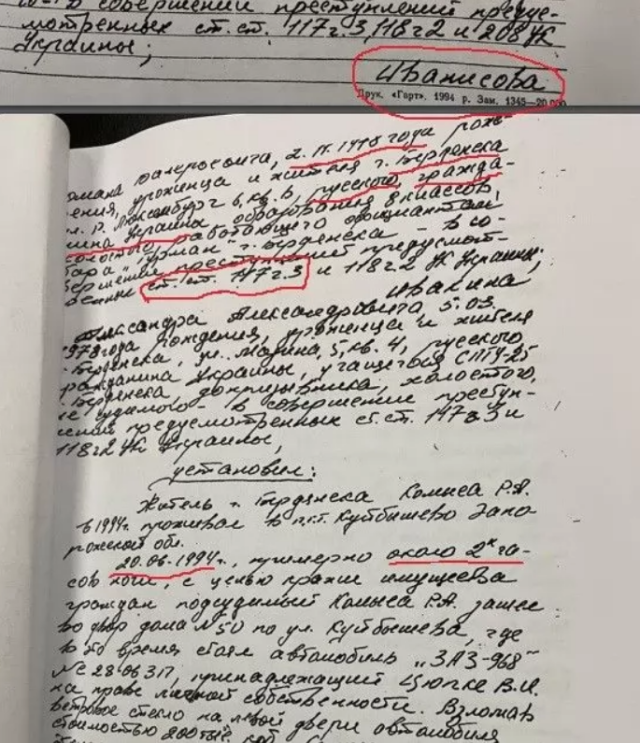 в совершении преступлений преду-
мотренных ст.ст. 117 ч.3, 118 ч2 и 208 УК
Украины;
Иванисова
Друк. «Гарт», 1994 р. Зам. 1345—20.000
1978 года рож-
ения, уроженца и жителя г. Бердянска
Люксембург 6, кв. 6, русского, гражда-
нина Украины, образования 8 классов,
холостого, работающего официантом
бара г. Бердянска - в со-
вершении преступлений предусмот-
ренных ст.ст. 117 ч.3 и 118 ч2 УК Украины;
Ивакина
Александра Александровича 5.03.
1978 года рождения, уроженца и жителя
г. Бердянска, ул. 5, кв. 4, русского,
гражданина Украины, учащегося СПТУ-25
г. Бердянска, допризывника, холостого,
не судимого - в совершении преступ-
лений предусмотренных ст.ст. 117 ч.3 и
118 ч2 УК Украины,
установил:
Житель г. Бердянска Комиса Р.А.
в 1994г. проживал в п.г.т. Куйбышево Запо
рожской обл.
20.06.1994г., примерно около 2х ча-
сов ночи, с целью кражи имущества
граждан подсудимый Комыса Р.А. зашел
во двор дома №50 по ул. Куйбышева, где
в это время стоял автомобиль „ЗАЗ-968"
№ С 28-06 ЗП, принадлежащий В.И.
на праве личной собственности. Взломав
ветровое стекло на левой двери автомобиля
стоимостью 200 тыс.